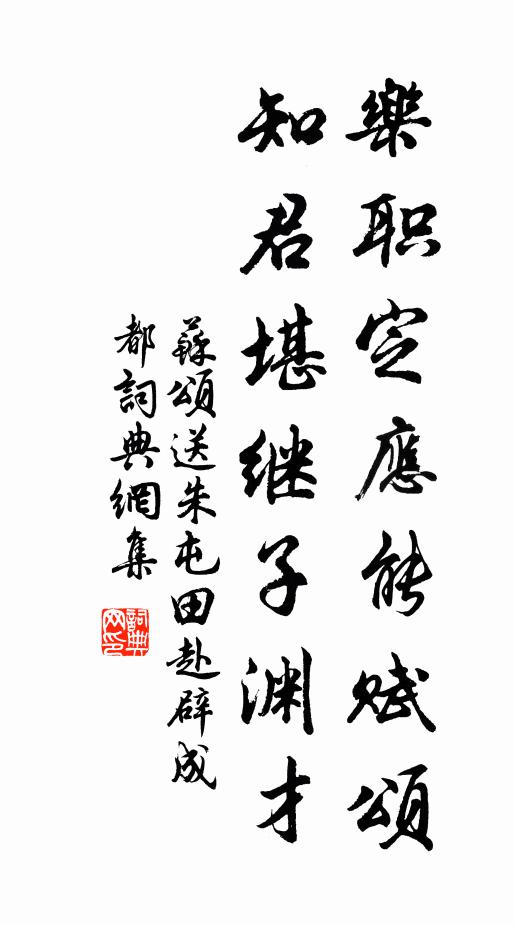 樂职定應能赋頌
知君堪继子渊才
蘇頌送朱屯田赴辟成
都詞典網集
詞典
网印